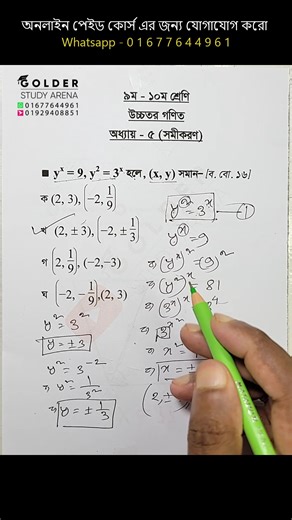 অনলাইন পেইড কোর্স এর জন্য যোগাযোগ করো
Whatsapp - 0 1 6 7 7 6 4 4 9 6 1
GOLDER
STUDY ARENA
01677644961
01929408851
৯ম - ১০ম শ্রেণি
উচ্চতর গণিত
অধ্যায় - ৫ (সমীকরণ)
■ yˣ = 9, y² = 3ˣ হলে, (x, y) সমান– [ব. বো. ১৬]
ক (2, 3), (-2, 1/9)
খ (2, ± 3), (-2, ± 1/3)
গ (2, 1/9), (-2, -3)
ঘ (-2, -1/9), (2, 3)
y² = 3²
y = ± 3
y² = 3⁻²
y² = 1/3²
y = ± 1/3
y² = 3ˣ — 1
yˣ = 9
(yˣ)² = (9)²
(y²)ˣ = 81
(3ˣ)ˣ
x² =
x = ±
(2, ±